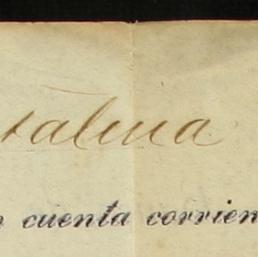 talina
n cuenta corrien